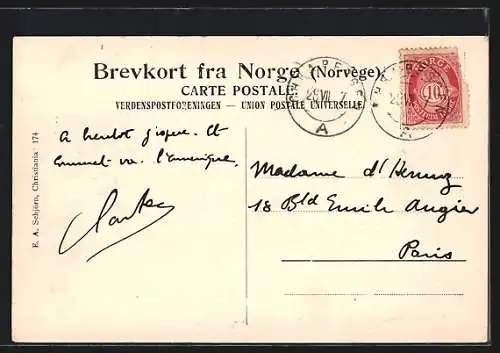 Brevkort fra Norge (Norvège)
CARTE POSTALE
VERDENSPOSTFORENINGEN – UNION POSTALE UNIVERSELLE
NORGE
10
28 VII 7
A
A
A bientot j'espere. Et
va l'amerique.
Madame d'
18 Bld Emile Augier
Paris
E. A. Schjörn, Christiania 174